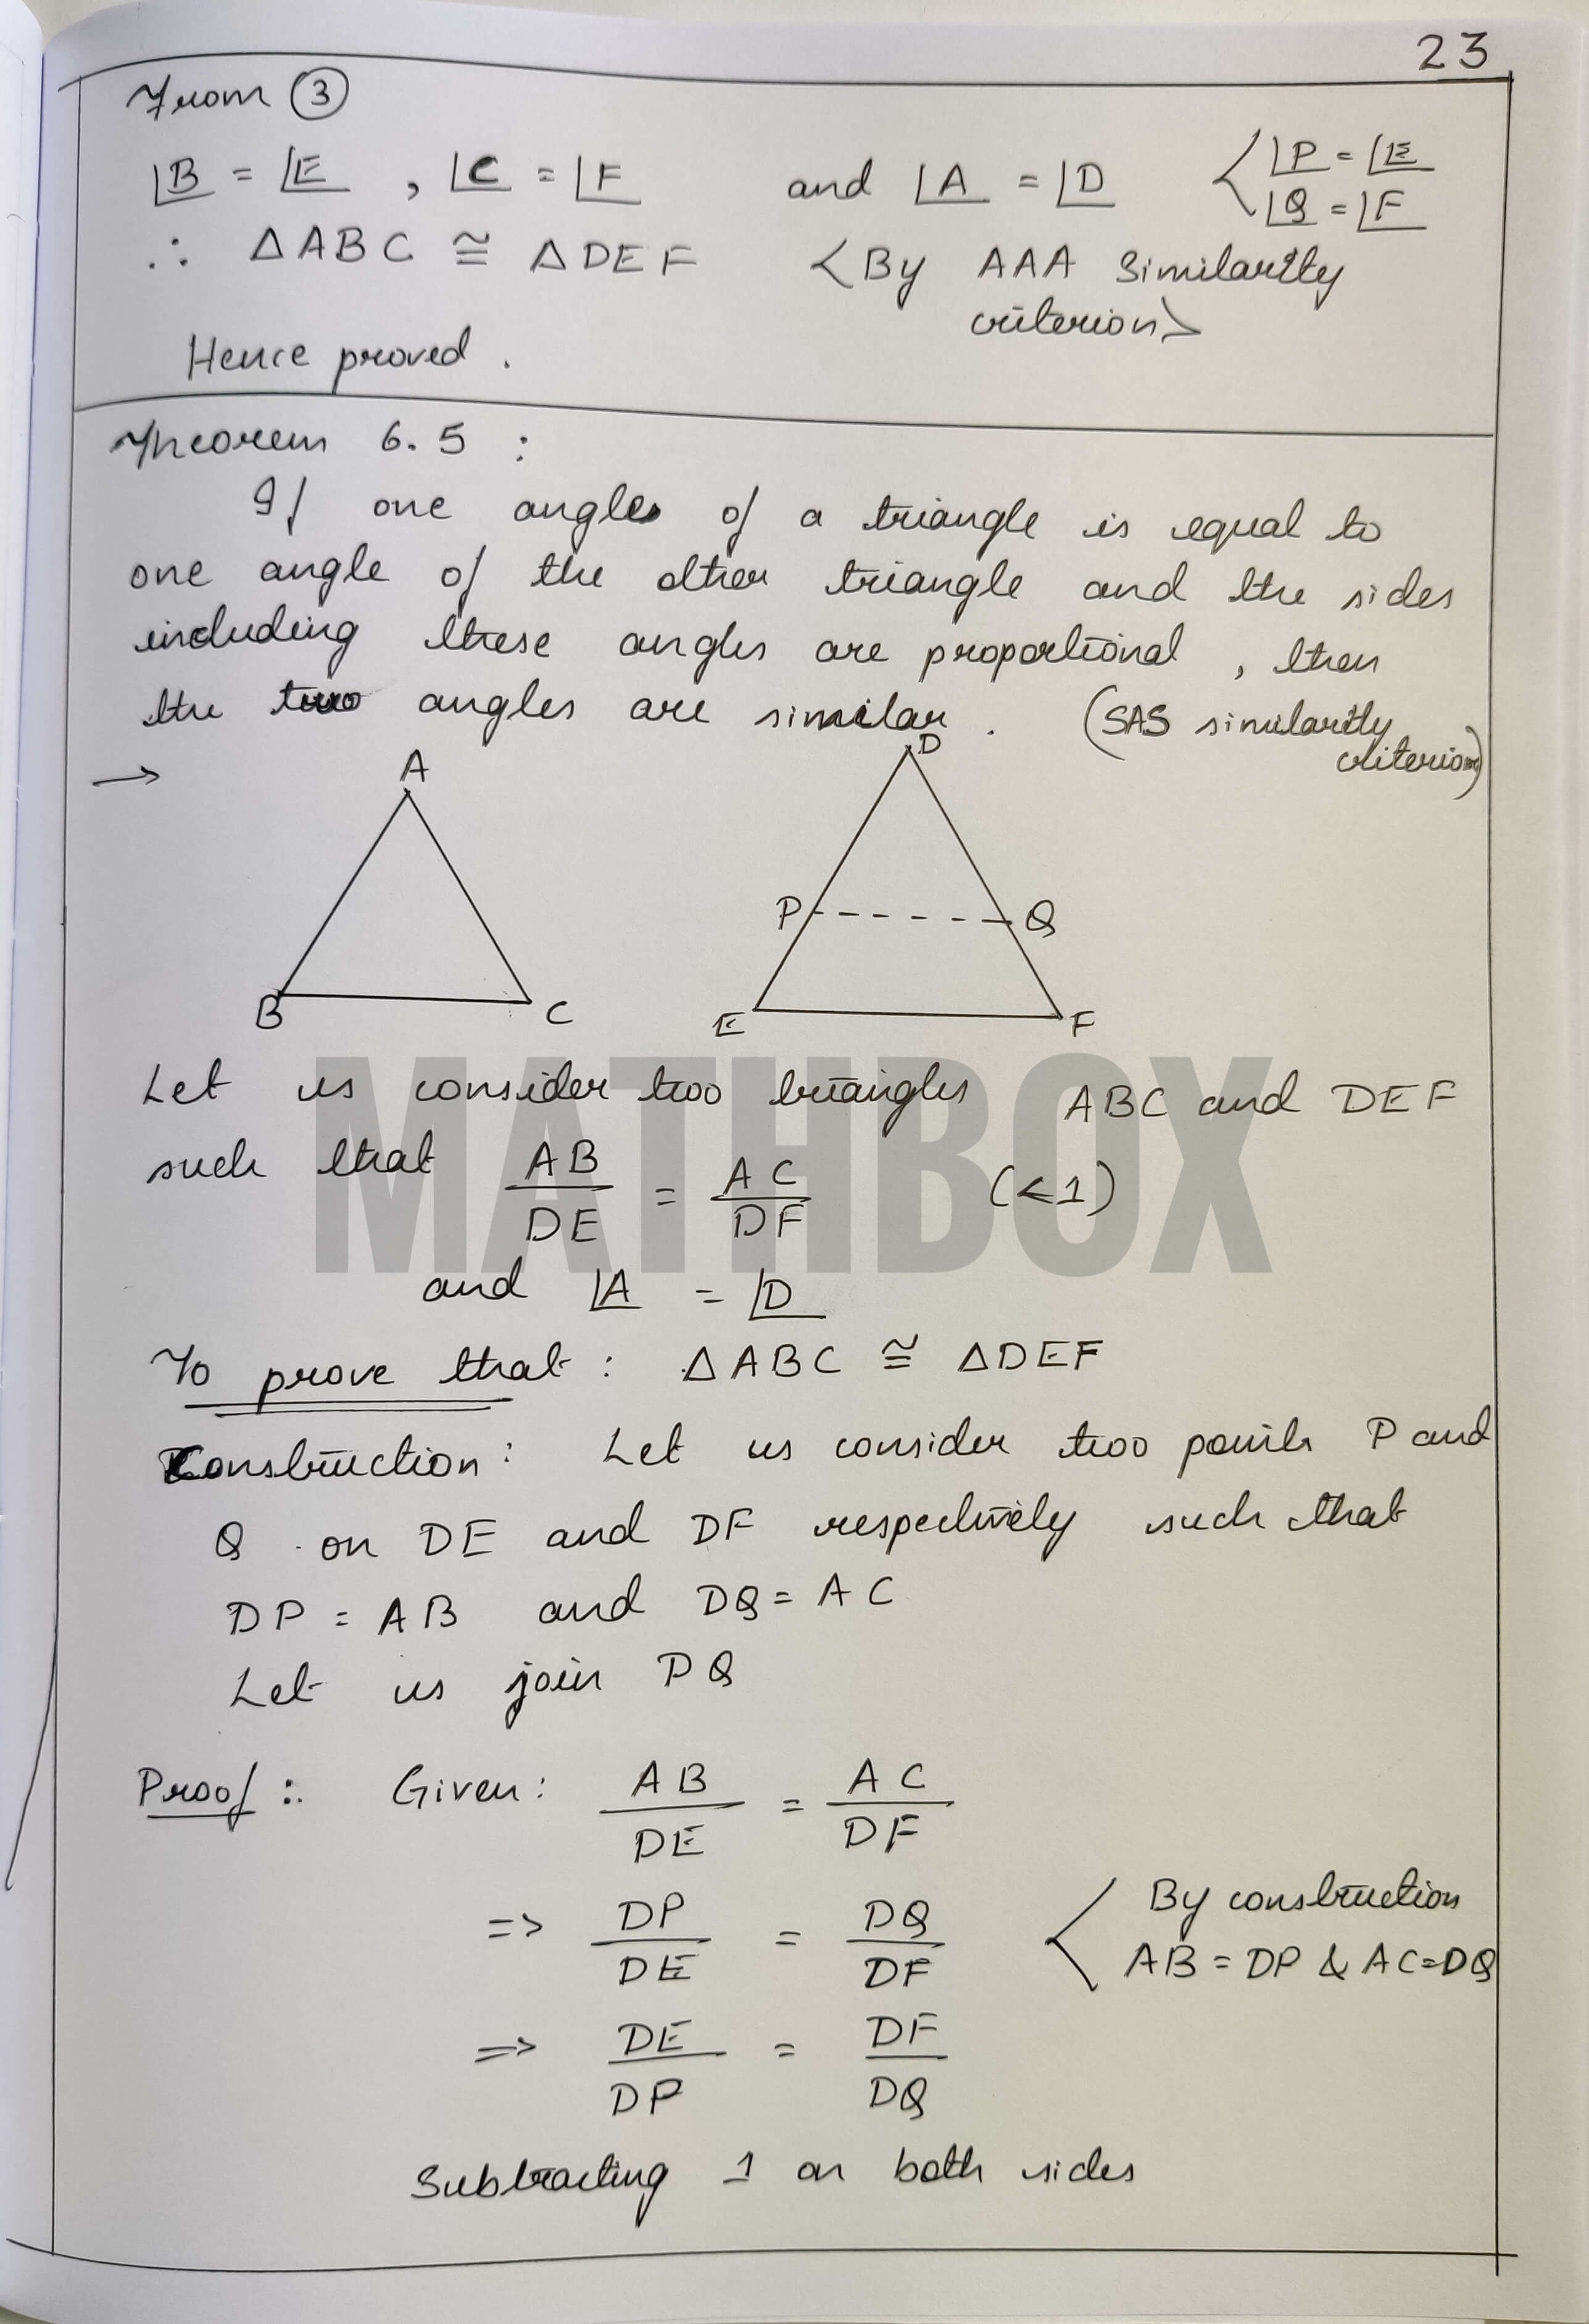 23
From ③
∠B = ∠E , ∠C = ∠F and ∠A = ∠D < ∠P = ∠E
∠Q = ∠F
∴ △ABC ≅ △DEF <By AAA Similarity
criterion>
Hence proved.
Theorem 6.5 :
If one angles of a triangle is equal to
one angle of the other triangle and the sides
including these angles are proportional , then
the two angles are similar . (SAS similarity
criterion)
→
A
D
P
Q
B
C
E
F
MATHBOX
Let us consider two triangles ABC and DEF
such that AB/DE = AC/DF (<1)
and ∠A = ∠D
To prove that : △ABC ≅ △DEF
Construction : Let us consider two points P and
Q on DE and DF respectively such that
DP = AB and DQ = AC
Let us join PQ
Proof :. Given : AB/DE = AC/DF
=> DP/DE = DQ/DF < By construction
AB = DP & AC=DQ
=> DE/DP = DF/DQ
Subtracting 1 on both sides